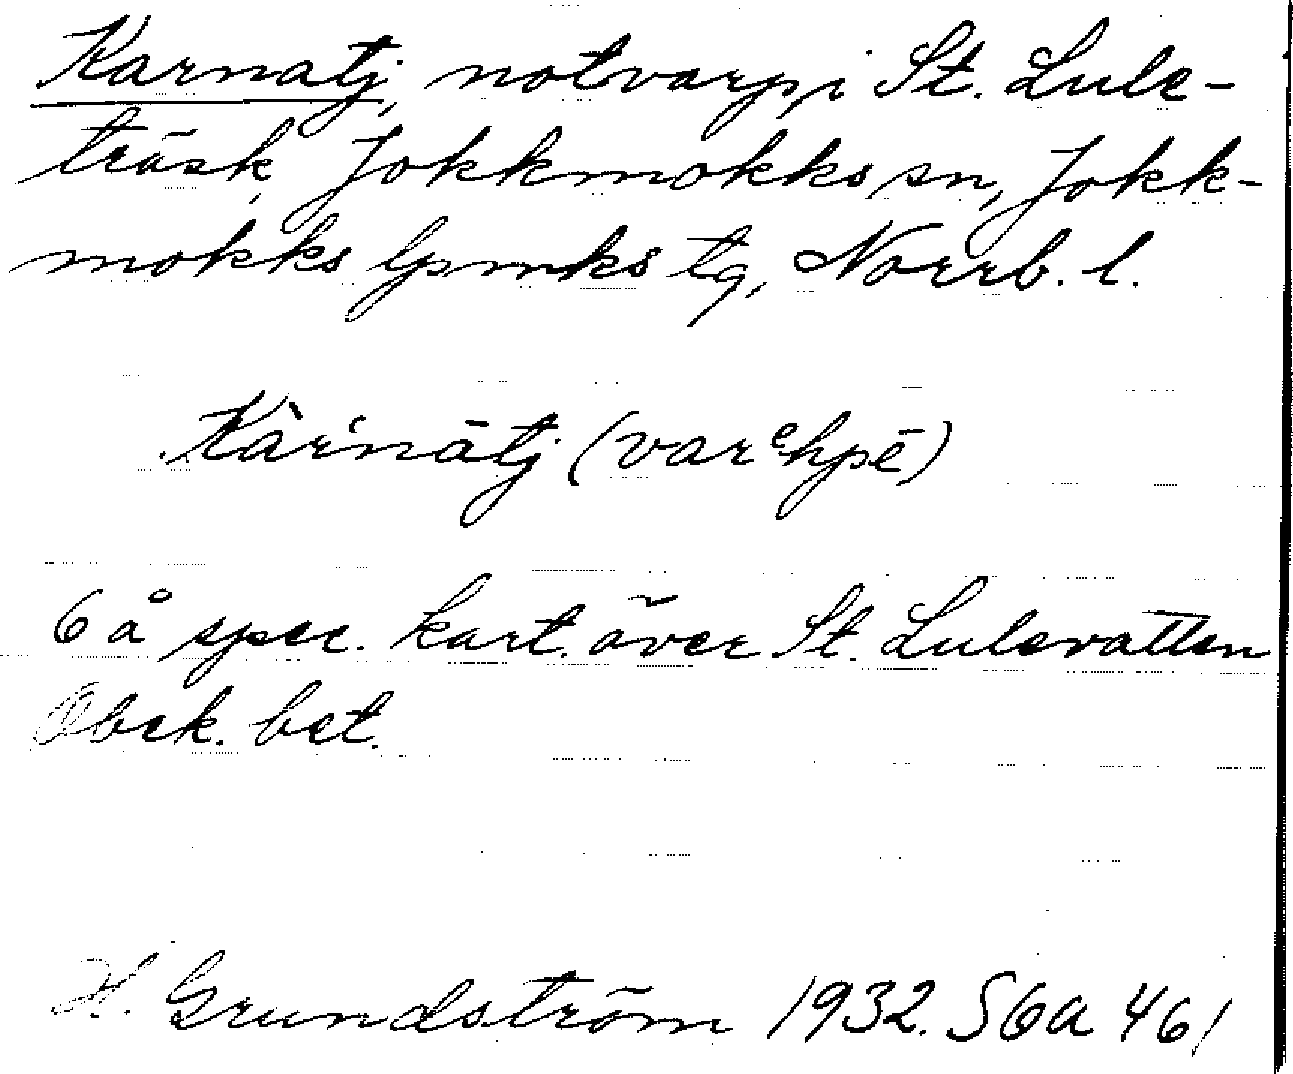 Karnatj, notvarp, i St. Lule-
träsk, Jokkmokks sn, Jokk-
mokks lpmks tg, Norrb. l.
Kàr'nātj (varᵉhpē)
6 å spec. kart. över St. Lulevatten
Obek. bet.
H. Grundström 1932. S6a 461